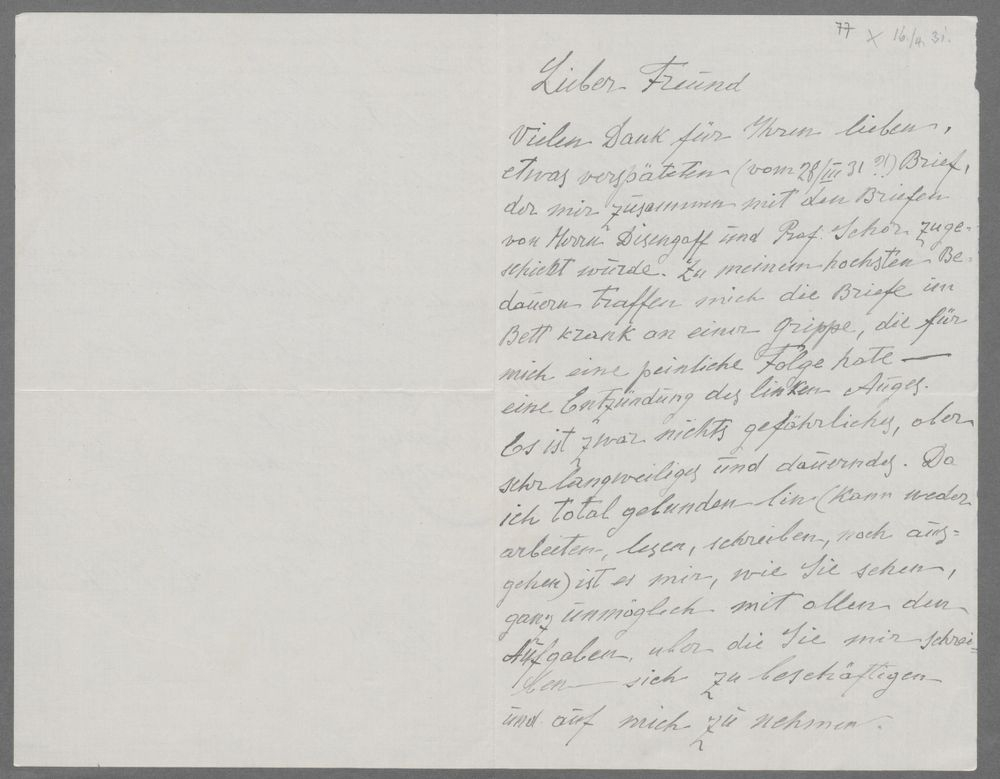 77 X 16./4. 31.
Lieber Freund
Vielen Dank für Ihren lieben,
etwas verspäteten (vom 28/III 31 ?!) Brief,
der mir zusammen mit den Briefen
von Herrn Disengoff und Prof. Schor zuge-
schickt würde. Zu meinem hochsten Be-
dauern traffen mich die Briefe im
Bett krank an einer Grippe, die für
mich eine peinliche Folge hate —
eine Entzündung des linken Auges.
Es ist zwar nichts gefährliches, aber
sehr langweiliges und dauerndes. Da
ich total gebunden bin (kann weder
arbeiten, lesen, schreiben, noch aus-
gehen) ist es mir, wie Sie sehen,
ganz unmöglich mit allen den
Aufgaben, uber die Sie mir schrei-
ben — sich zu beschäftigen
und auf mich zu nehmen.